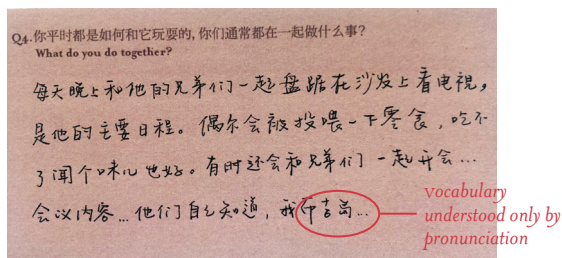 Q4.你平时都是如何和它玩耍的,你们通常都在一起做什么事?
What do you do together?
每天晚上和他的兄弟们一起盘踞在沙发上看电视，
是他的主要日程。偶尔会被投喂一下零食，吃不
了闻个味儿也好。有时还会和兄弟们一起开会…
会议内容…他们自己知道，我布吉岛…
Vocabulary
understood only by
pronunciation